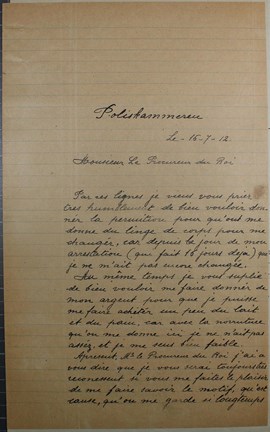 Poliskammeren
Le - 15-7-18.
Monsieur Le Procureur du Roi
Par ces lignes je vieus vous prier
tres humblement de bien vouloir don-
ner la permition pour qu'ont me
donne du linge de corps pour me
changèr, car depuis le jour de mon
arrestation (qui fait 16 jours deja) qu'
je ne m'ait pas encore changée.
Au même temps je vous suplie
de bien vouloir me faire donnèr de
mon argent pour que je puisse
me faire achétèr un peu du lait
et du pain, car avec la norriture
qu'on me donne ici je ne n'ait pas
assez, et je me sens bien faible.
Apresent, Mr Le Procureur du Roi j'ai a
vous dire que je vous serai toujours très
reconessent si vous me faites le plaisir
de me faire savoir le motif, qu'est
cause, qu'on me garde si longtemps